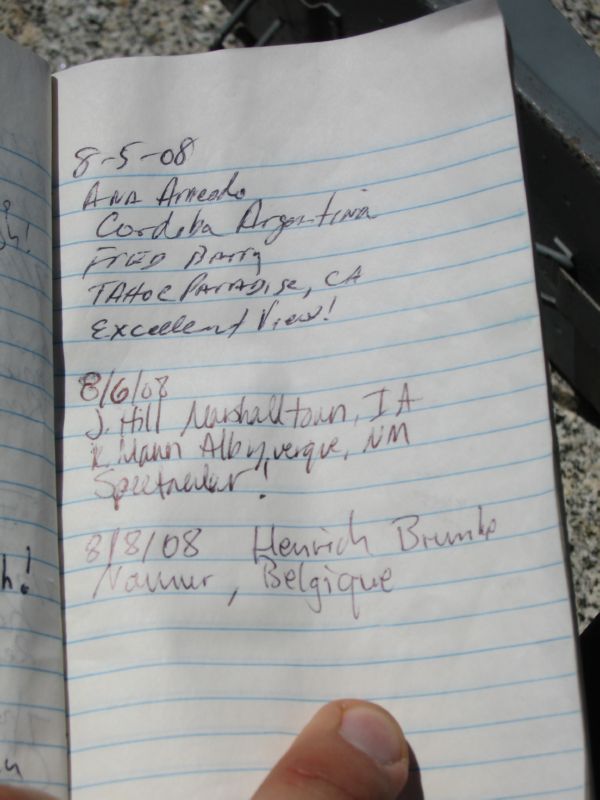 8-5-08
ANA
Cordoba Argentina
FRED Barry
TAHOE PARADISE, CA
Excellent View!
8/6/08
J. Hill Marshalltown, IA
K. Mann Albuyuerque, NM
Spectacular!
8/8/08 Henrich
Namur, Belgique
h!